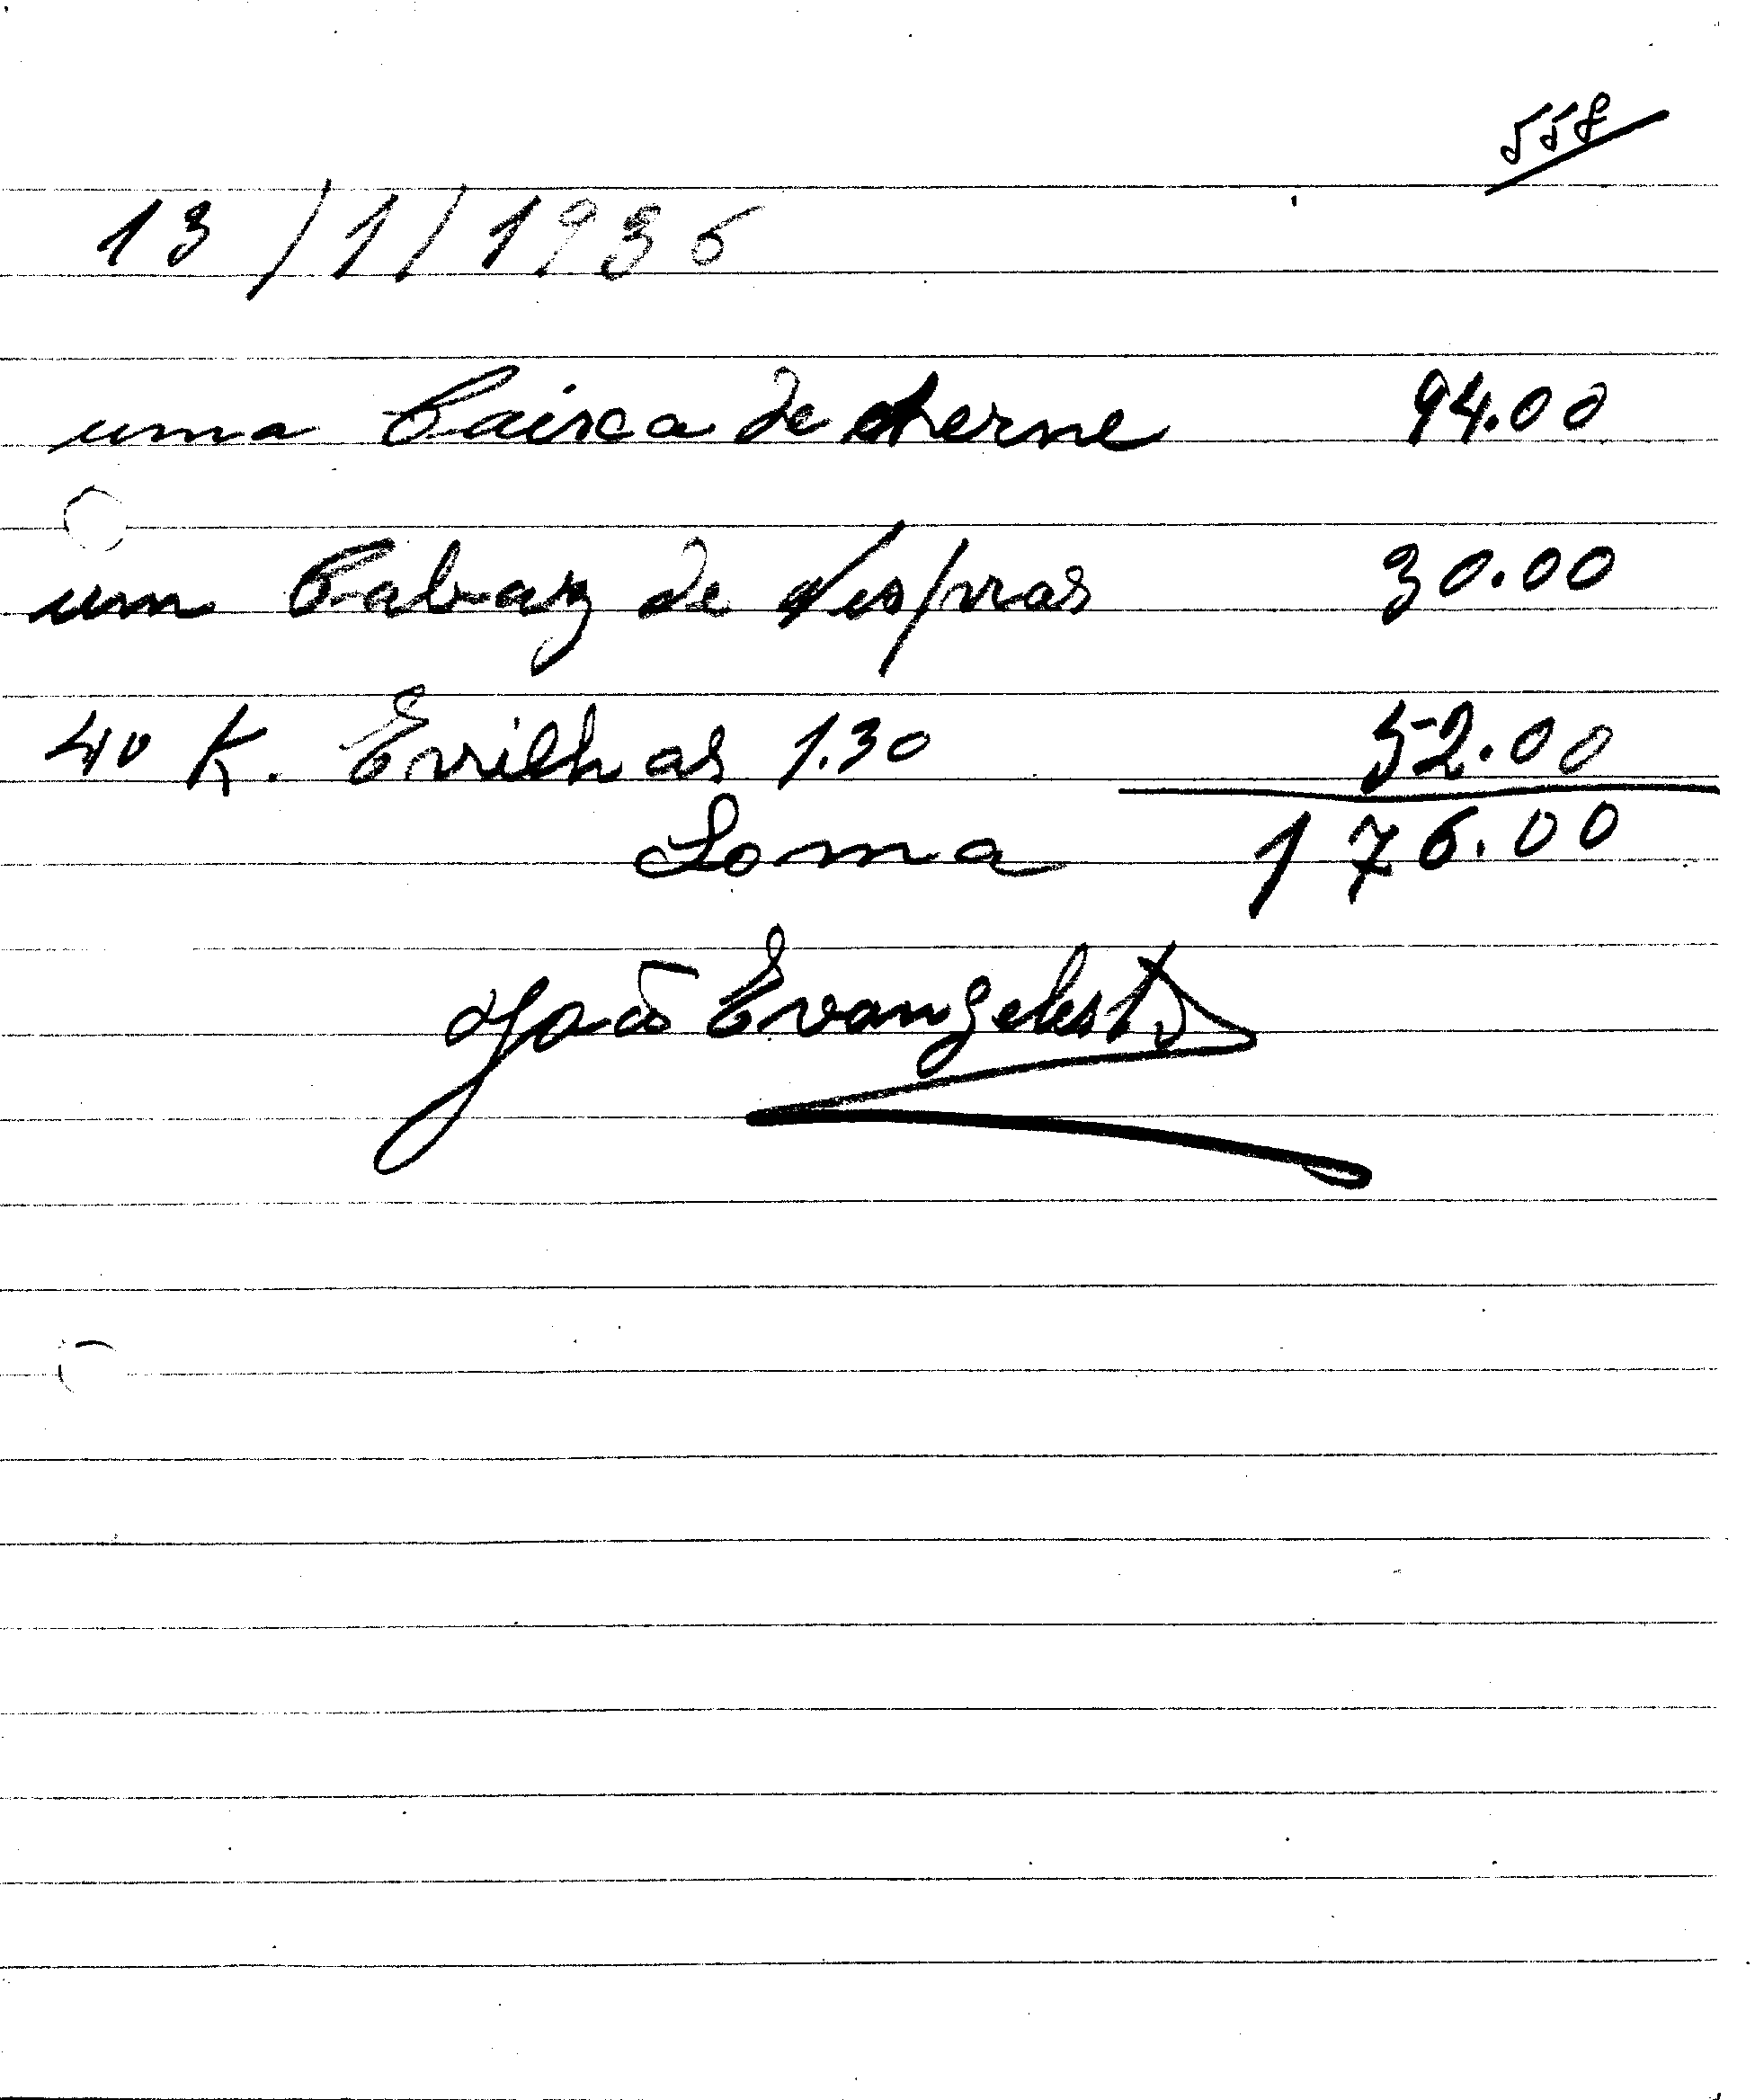 558
13/1/1936
uma Caixa de cherne 94.00
um Cabaz de 30.00
40 K. Ervilhas 1.30 52.00
Soma 176.00
João Evangelista